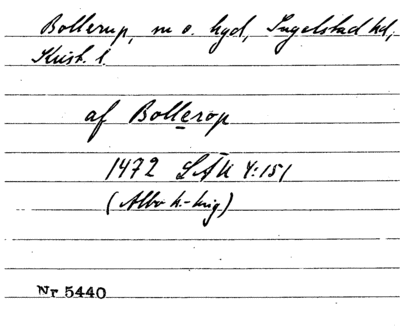 Bollerup, m o. hgd, Ingelstad hd,
Krist. l.
af Bollerop
1472 LÄU 4:151
(Albo h.-krig.)
Nr 5440